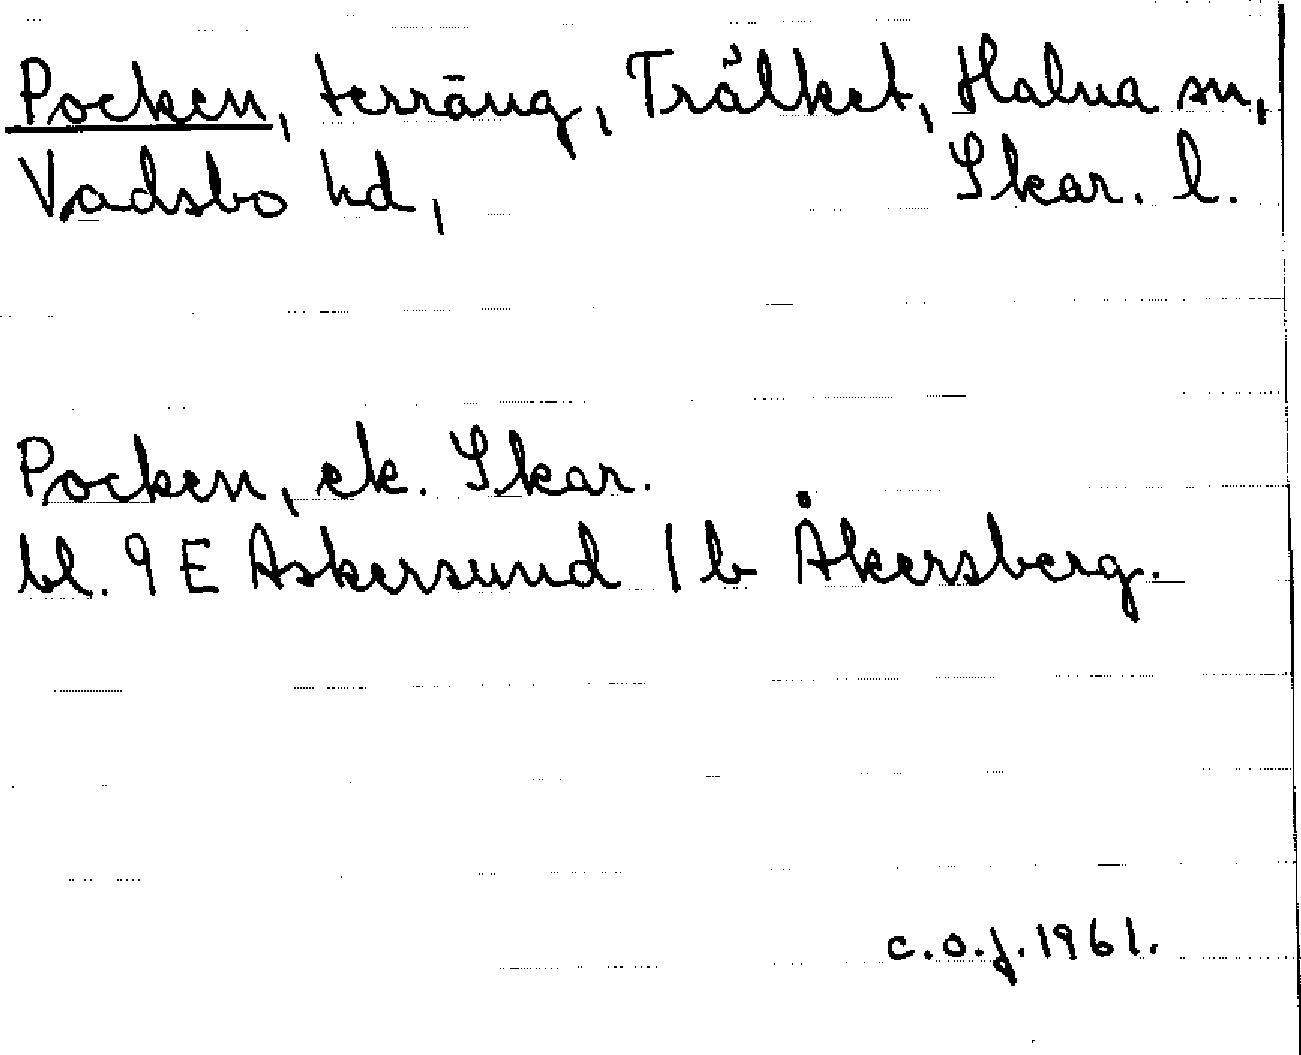 Pocken, terräng, Trälket, Halna sn,
Vadsbo hd, Skar. l.
Pocken, ek. Skar.
bl. 9 E Askersund 1 b Åkersberg.
c.o.j. 1961.